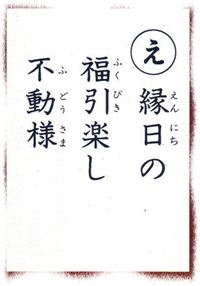 え
縁日の
えんにち
福引楽し
ふくびき
不動様
ふどうさま